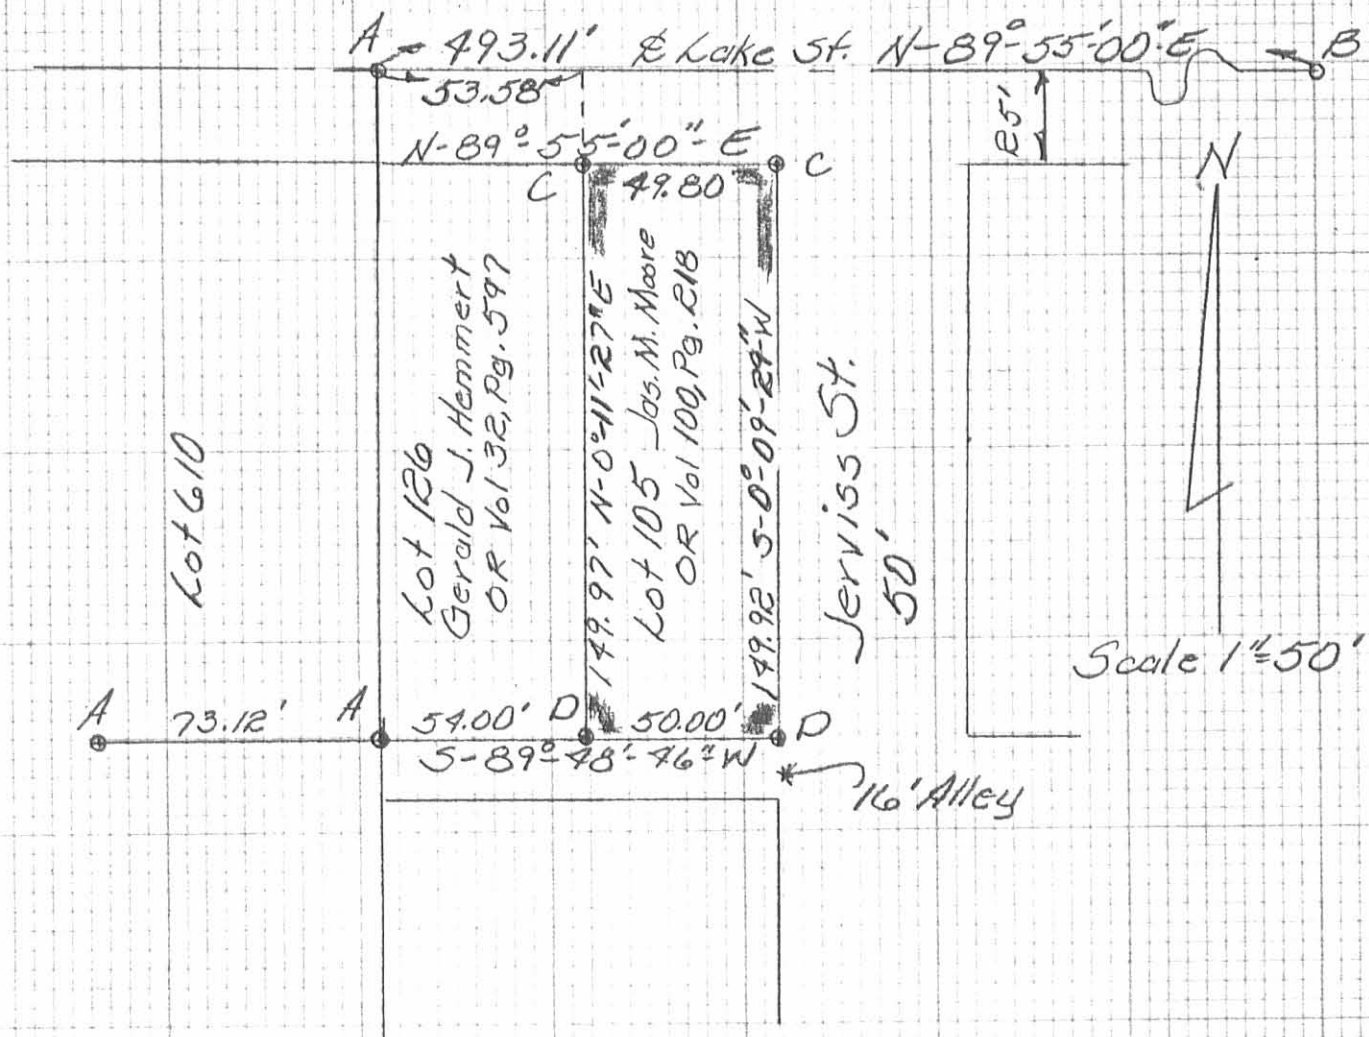 A 493.11' ℄ Lake St. N-89°-55'-00"-E B
53.58'
25'
N-89°-55'-00"-E
C 49.80' C
N
Lot 610
Lot 126
Gerald J. Hemmert
OR Vol 132, Pg. 597
149.97' N-0°-11'-27"E
Lot 105 Jas. M. Moore
OR Vol 100, Pg. 218
149.92' S-0°-09'-24"-W
Jerviss St.
50'
Scale 1"=50'
A 73.12' A 54.00' D 50.00' D
S-89°-48'-46"-W
* 16' Alley